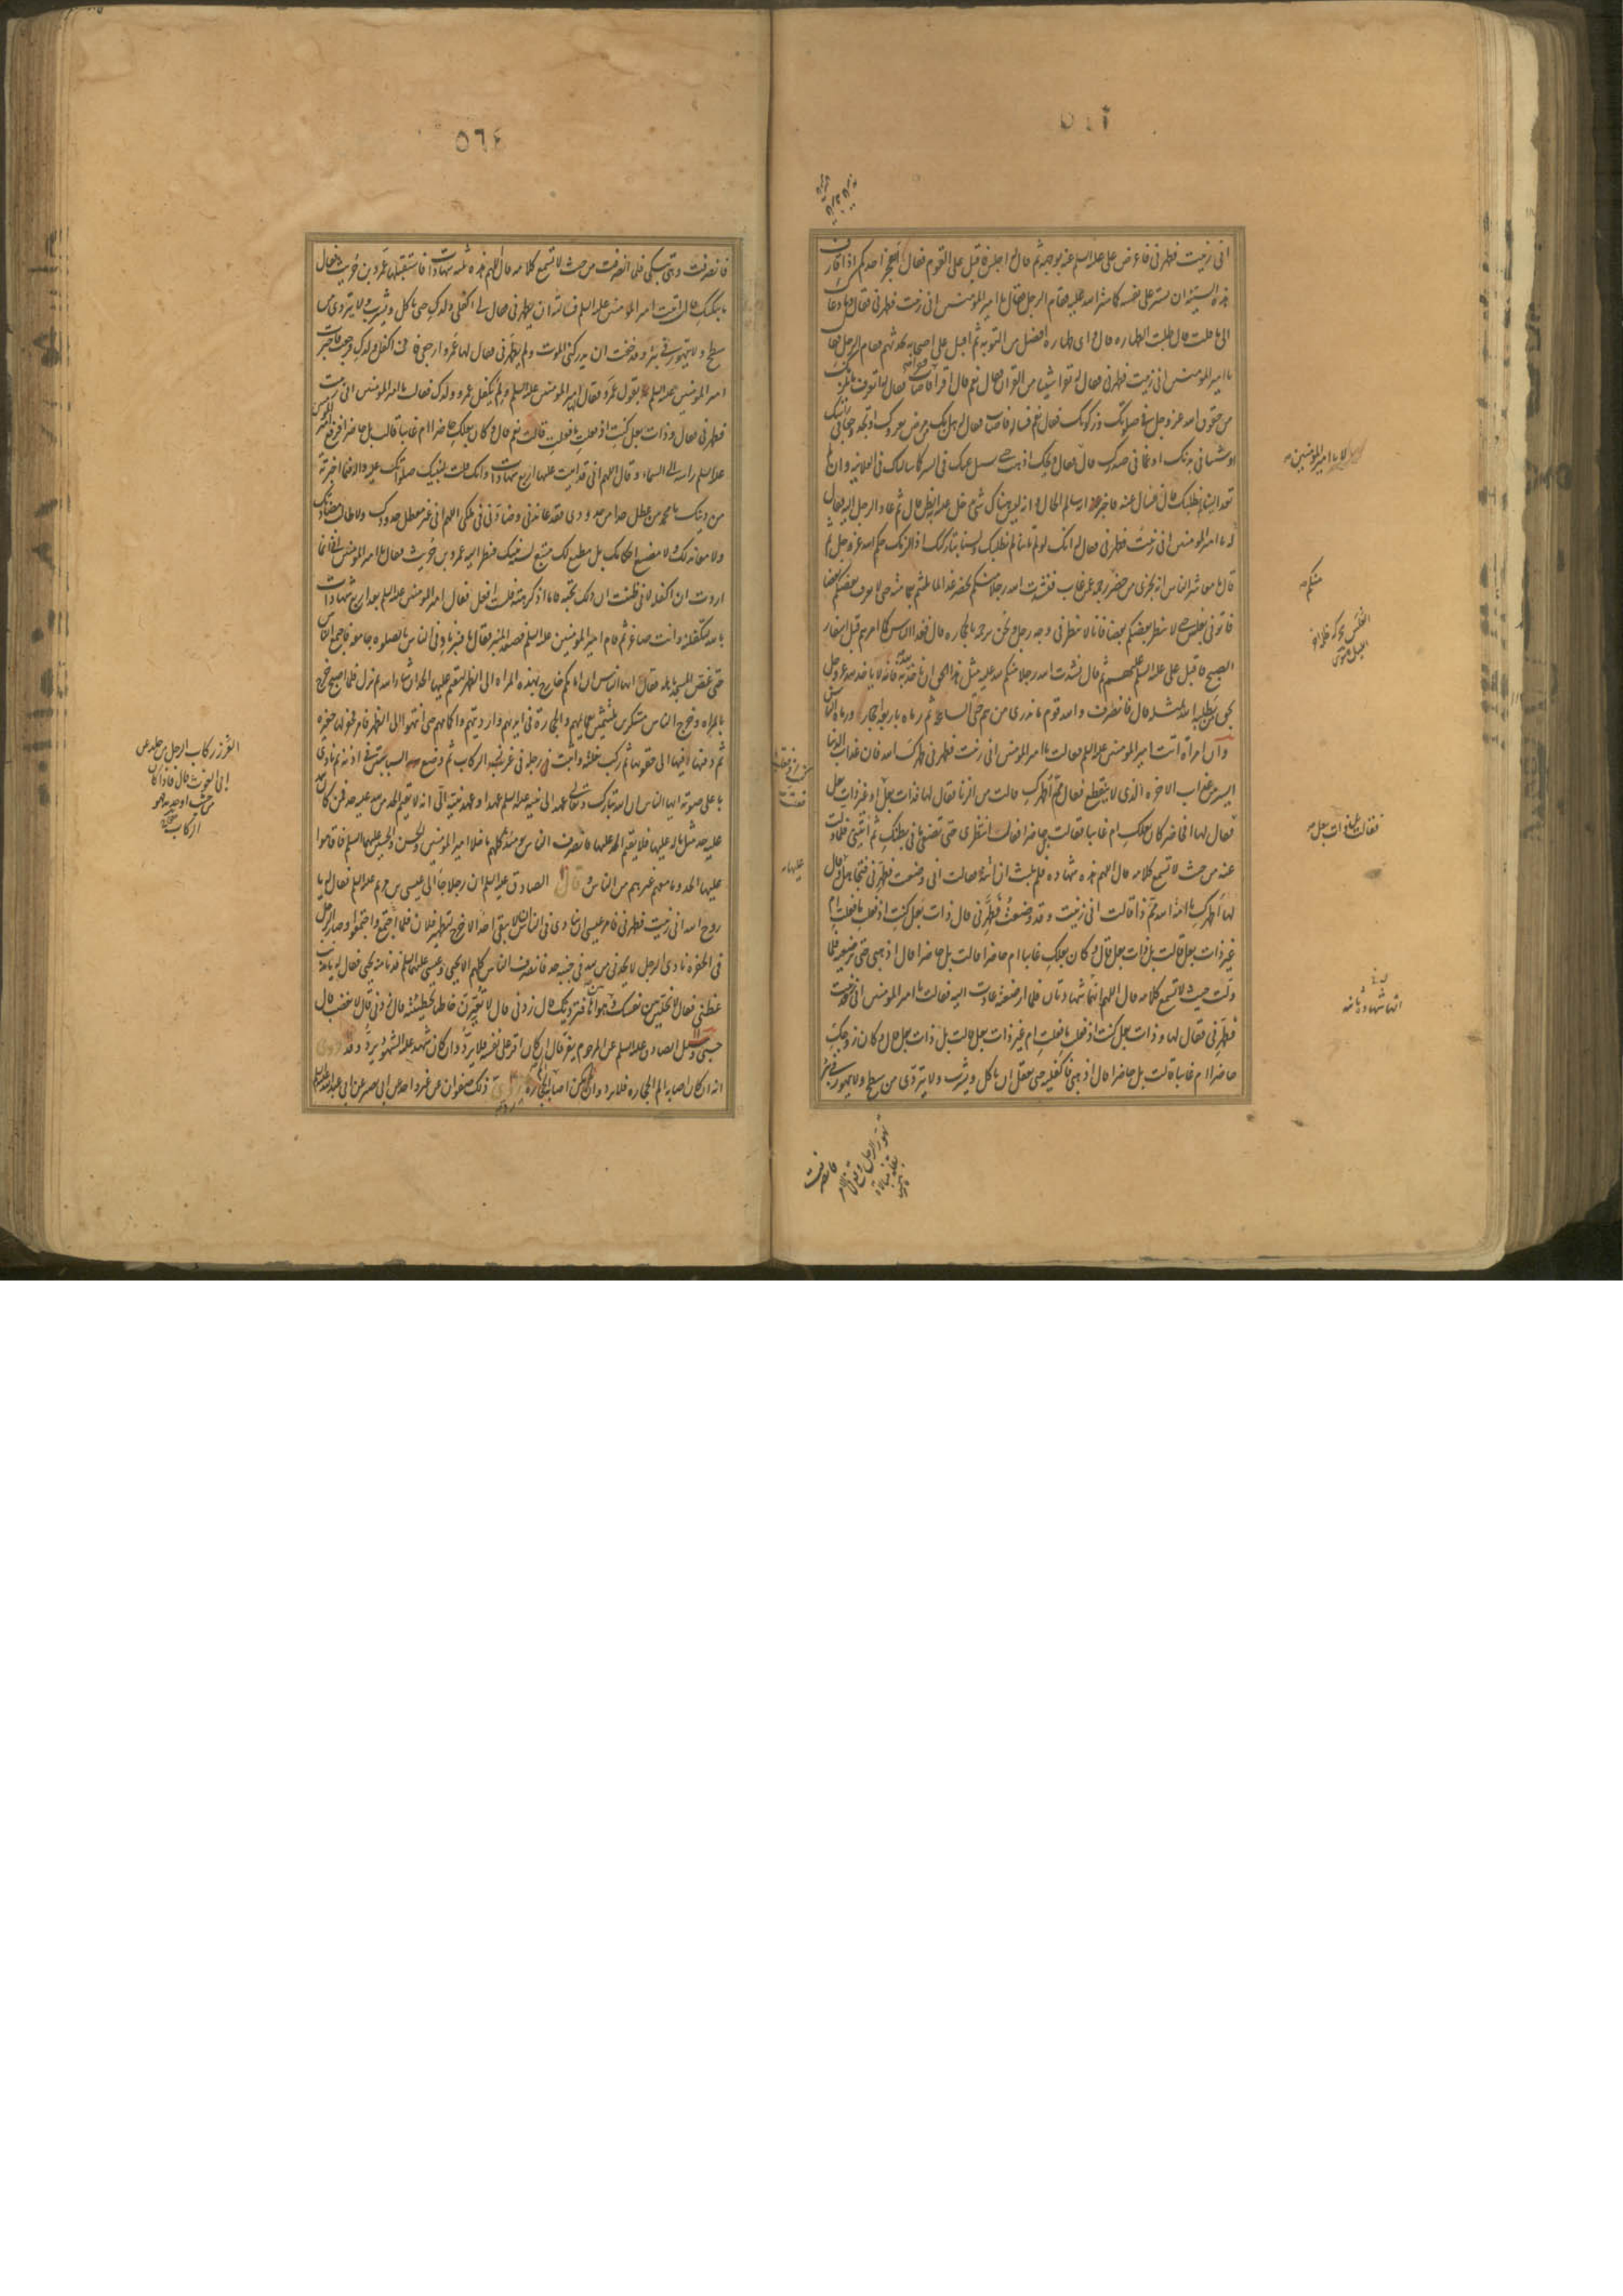 انى زنيت فطهرنى فاعرض على عليه السلم عنه بوجهه ثم قال له اجلس فاقبل على القوم فقال ايعجز احدكم اذا قارف
هذه السيئة ان يستر على نفسه كما ستر الله عليه فقام الرجل فقال يا امير المؤمنين انى زنيت فطهرنى فقال وما دعاك
الى ما قلت قال طلب الطهارة قال واى طهارة افضل من التوبة ثم اقبل على اصحابه يحدثهم فقام الرجل فقال
يا امير المؤمنين انى زنيت فطهرنى فقال له اتقرا شيئا من القران قال نعم قال اقرا فقرا فاصاب فقال له اتعرف ما يلزمك
من حقوق الله عز وجل فى صلوتك وزكوتك فقال نعم فساله فاصاب فقال له هل بك من مرض يعروك او تجد وجعا فى راسك
او شيئا فى بدنك او غما فى صدرك قال لا فقال ويحك اذهب حتى نسئل عنك فى السر كما سالناك فى العلانية فان لم
تعد الينا لم نطلبك قال فسال عنه فاخبر انه سالم الحال وانه ليس هناك شئ يدخل عليه به الظن قال ثم عاد الرجل اليه فقال
له يا امير المؤمنين انى زنيت فطهرنى فقال له انك لو لم تاتنا لم نطلبك ولسنا بتاركيك اذا لزمك حكم الله عز وجل ثم
قال يا معاشر الناس انه يجزى من حضر رجمه عمن غاب فنشدت الله رجلا منكم يحضر غدا لما تلثم بعمامته حتى لا يعرف بعضكم بعضا
فاتونى بغلس حتى لا ينظر بعضكم بعضا فانا لا ننظر فى وجه رجل ونحن نرجمه بالحجارة قال فغدا الناس كما امرهم قبل اسفار
الصبح فاقبل على عليه السلم عليهم ثم قال نشدت الله رجلا منكم لله عليه مثل هذا الحق ان ياخذ لله به فانه لا ياخذ لله عز وجل
بحق من يطلبه الله بمثله قال فانصرف والله قوم ما ندرى من هم حتى الساعة ثم رماه باربعة احجار ورماه الناس
وان امراة اتت امير المؤمنين عليه السلم فقالت يا امير المؤمنين انى زنيت فطهرنى طهرك الله فان عذاب الدنيا
ايسر من عذاب الاخرة الذى لا ينقطع فقال مم اطهرك قالت من الزنا فقال لها فذات بعل انت ام غير ذات بعل
فقال لها افحاضرا كان بعلك ام غائبا فقالت بل حاضرا فقال انتظرى حتى تضعى ما فى بطنك ثم ائتينى فلما ولت
عنه من حيث لا تسمع كلامه قال اللهم هذه شهادة فلم تلبث ان اتته فقالت انى وضعت فطهرنى فتجاهل وقال
لها اطهرك يا امة الله مم ذا قالت انى زنيت وقد وضعت فطهرنى قال وذات بعل كنت اذ فعلت ما فعلت ام
غير ذات بعل قالت بل ذات بعل قال وكان بعلك غائبا ام حاضرا قالت بل حاضرا قال اذهبى حتى ترضعيه فلما
ولت حيث لا تسمع كلامه قال اللهم انهما شهادتان فلما ارضعته عادت اليه فقالت يا امير المؤمنين انى زنيت
فطهرنى فقال لها وذات بعل كنت اذ فعلت ما فعلت ام غير ذات بعل قالت بل ذات بعل قال وكان زوجك
حاضرا ام غائبا قالت بل حاضرا قال اذهبى فاكفليه حتى يعقل ان ياكل ويشرب ولا يتردى من سطح ولا يتهور فى بئر
يا امير المؤمنين
منكم
الغلس محركة ظلمة اخر
الليل
فقالت بل ذات بعل
انها شهادة ثانية
فانصرفت
٥٦٤
فانصرفت وهى تبكى فلما انصرفت من حيث لا تسمع كلامه قال اللهم هذه ثلث شهادات فاستقبلها عمرو بن حريث فقال
ما يبكيك قالت اتيت امير المؤمنين عليه السلم فسالته ان يطهرنى فقال لى اكفلى ولدك حتى ياكل ويشرب ولا يتردى من
سطح ولا يتهور فى بئر وقد خفت ان يدركنى الموت ولم يطهرنى فقال لها عمرو ارجعى فانى اكفل ولدك فرجعت فاخبرت
امير المؤمنين عليه السلم بقول عمرو فقال امير المؤمنين عليه السلم ولم يكفل عمرو ولدك فقالت يا امير المؤمنين انى زنيت
فطهرنى فقال وذات بعل كنت اذ فعلت ما فعلت قالت نعم قال وكان بعلك حاضرا ام غائبا قالت بل حاضرا فرفع امير المؤمنين
عليه السلم راسه الى السماء وقال اللهم انى قد اثبت عليها اربع شهادات وانك قلت لنبيك صلواتك عليه واله فيما اخبرته
من دينك يا محمد من عطل حدا من حدودى فقد عاندنى وضادنى فى ملكى اللهم انى غير معطل حدودك ولا طالب مضادتك
ولا معاندتك ولا مضيع احكامك بل مطيع لك متبع لسنة نبيك فنظر اليه عمرو بن حريث فقال يا امير المؤمنين انى انما
اردت ان اكفله لانى ظننت ان ذلك تحبه فاما اذ كرهته فلست افعل فقال امير المؤمنين عليه السلم بعد اربع شهادات
بالله لتكفلنه وانت صاغر ثم قام امير المؤمنين عليه السلم فصعد المنبر فقال يا قنبر ناد فى الناس الصلوة جامعة فاجتمع الناس
حتى غص المسجد باهله فقال ايها الناس ان امامكم خارج بهذه المراة الى الظهر ليقيم عليها الحد ان شاء الله ثم نزل فلما اصبح خرج
بالمراة وخرج الناس متنكرين متلثمين بعمايمهم والحجارة فى ايديهم وارديتهم واكمامهم حتى انتهوا الى الظهر فامر فحفر لها حفيرة
ثم دفنها فيها الى حقويها ثم ركب بغلته واثبت رجله فى غرز الركاب ثم وضع يديه السبابتين فى اذنيه ثم نادى
باعلى صوته ايها الناس ان الله تبارك وتعالى عهد الى نبيه عليه السلم عهدا وعهد نبيه الى انه لا يقيم الحد من لله عليه حد فمن كان لله
عليه حد مثل ما له عليها فلا يقيم الحد عليها فانصرف الناس يومئذ كلهم ما خلا امير المؤمنين والحسن والحسين عليهم السلم فاقاموا
عليها الحد وما معهم غيرهم من الناس وقال الصادق عليه السلم ان رجلا جاء الى عيسى بن مريم عليه السلم فقال له يا
روح الله انى زنيت فطهرنى فامر عيسى ان ينادى فى الناس ان لا يبقى احد الا خرج لتطهير فلان فلما اجتمع واجتمعوا وصار الرجل
فى الحفرة نادى الرجل لا يحدنى من لله فى جنبه حد فانصرف الناس كلهم الا يحيى وعيسى عليهما السلم فدنا منه يحيى فقال له يا مذنب
عظنى فقال لا تخلين بين نفسك وهواها فترديك قال زدنى قال لا تعيرن خاطيا بخطيئته قال زدنى قال لا تغضب قال
حسبى وسئل الصادق عليه السلم عن المرجوم يفر قال ان كان اقر على نفسه فلا يرد وان كان شهد عليه الشهود يرد وقد روى
انه ان كان اصابه الم الحجارة فلا يرد وان لم يكن اصابه الم الحجارة رد روى ذلك صفوان عن غير واحد عن ابى بصير عن ابى عبد الله عليه السلم
الغرز ركاب الرجل من جلد عن
ابى الغوث قال فاذا كان
من خشب او حديد فهو
ركاب صحاح
عليها